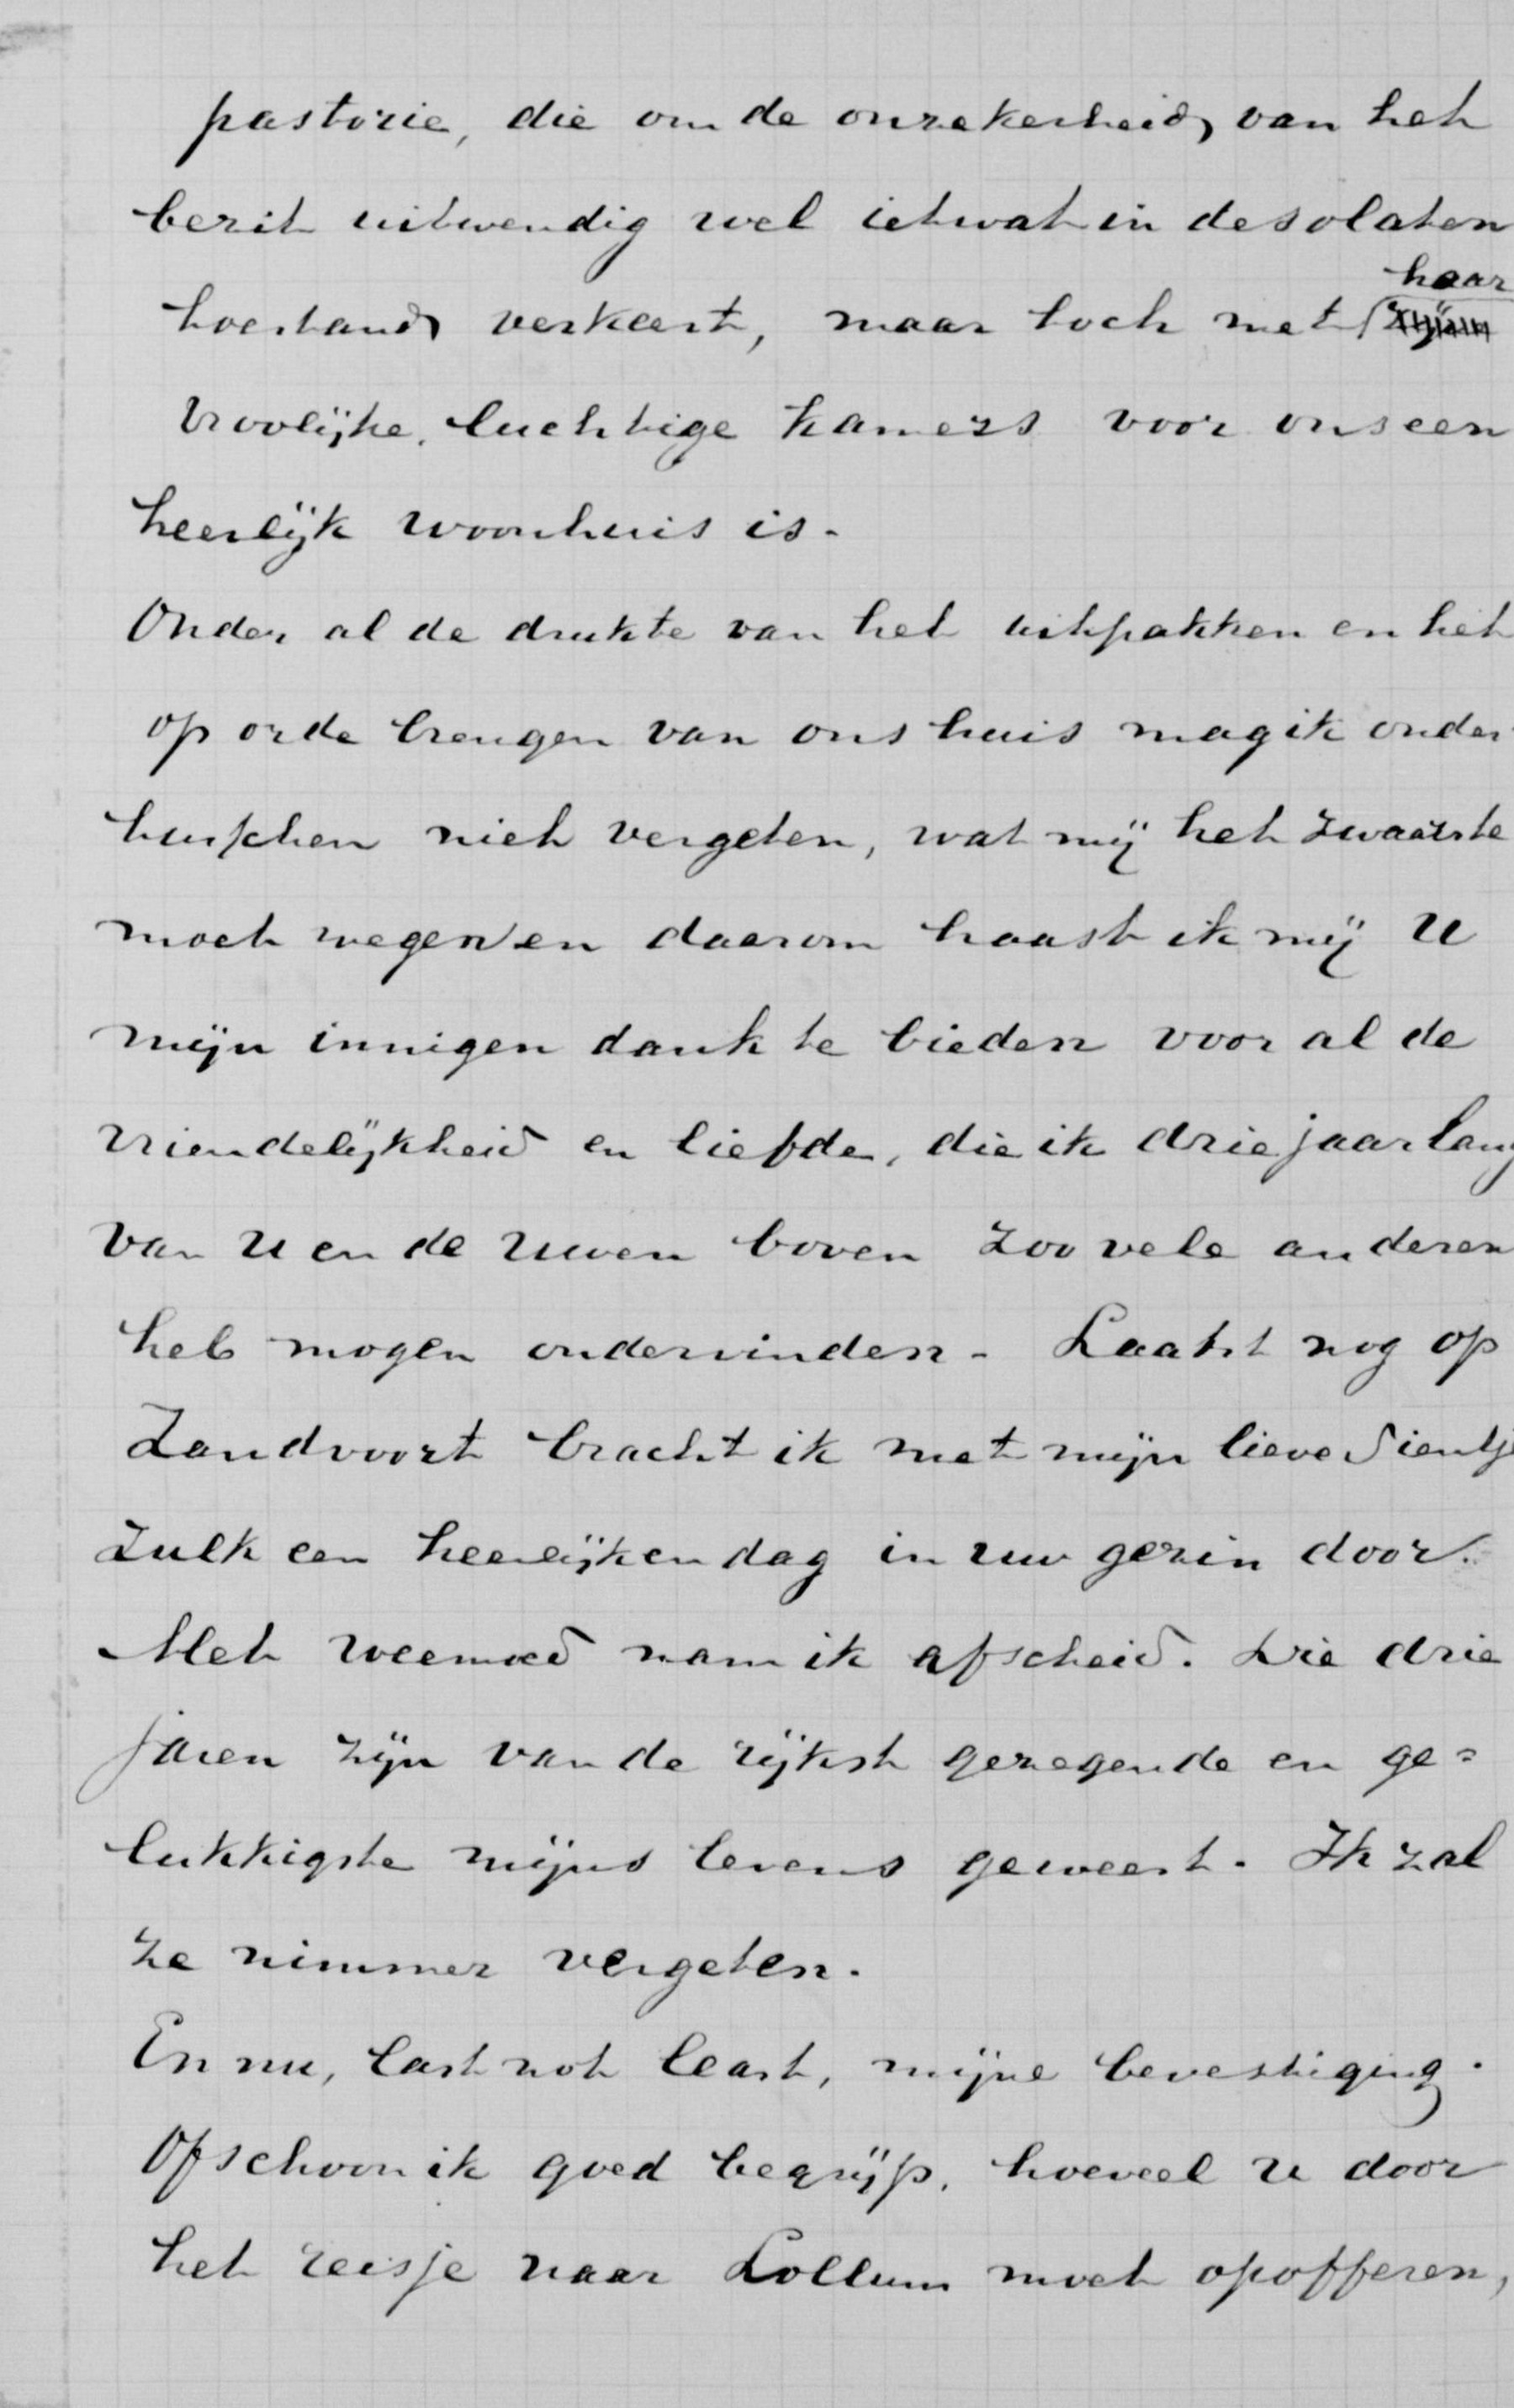 pastorie, die om de onzekerheid van het
bezit uitwendig wel ietwat in desolaten
haar
toestand verkeert, maar toch met zijn
vroolijke, luchtige kamers voor ons een
heerlijk woonhuis is.
Onder al de drukte van het uitpakken en het
op orde brengen van ons huis mag ik onder
tusschen niet vergeten, wat mij het zwaarste
moet wegen en daarom haast ik mij U
mijn innigen dank te bieden voor al de
vriendelijkheid en liefde, die ik drie jaar lang
van U en de Uwen boven zoo vele anderen
heb mogen ondervinden. Laatst nog op
Zandvoort bracht ik met mijn lieve Sientje
zulk een heerlijken dag in uw gezin door.
Met weemoed nam ik afscheid. Die drie
jaren zijn van de rijkst gezegende en ge=
lukkigste mijns levens geweest. Ik zal
ze nimmer vergeten.
En nu, last not least, mijne bevestiging.
Ofschoon ik goed begrijp, hoeveel U door
het reisje naar Lollum moet opofferen,